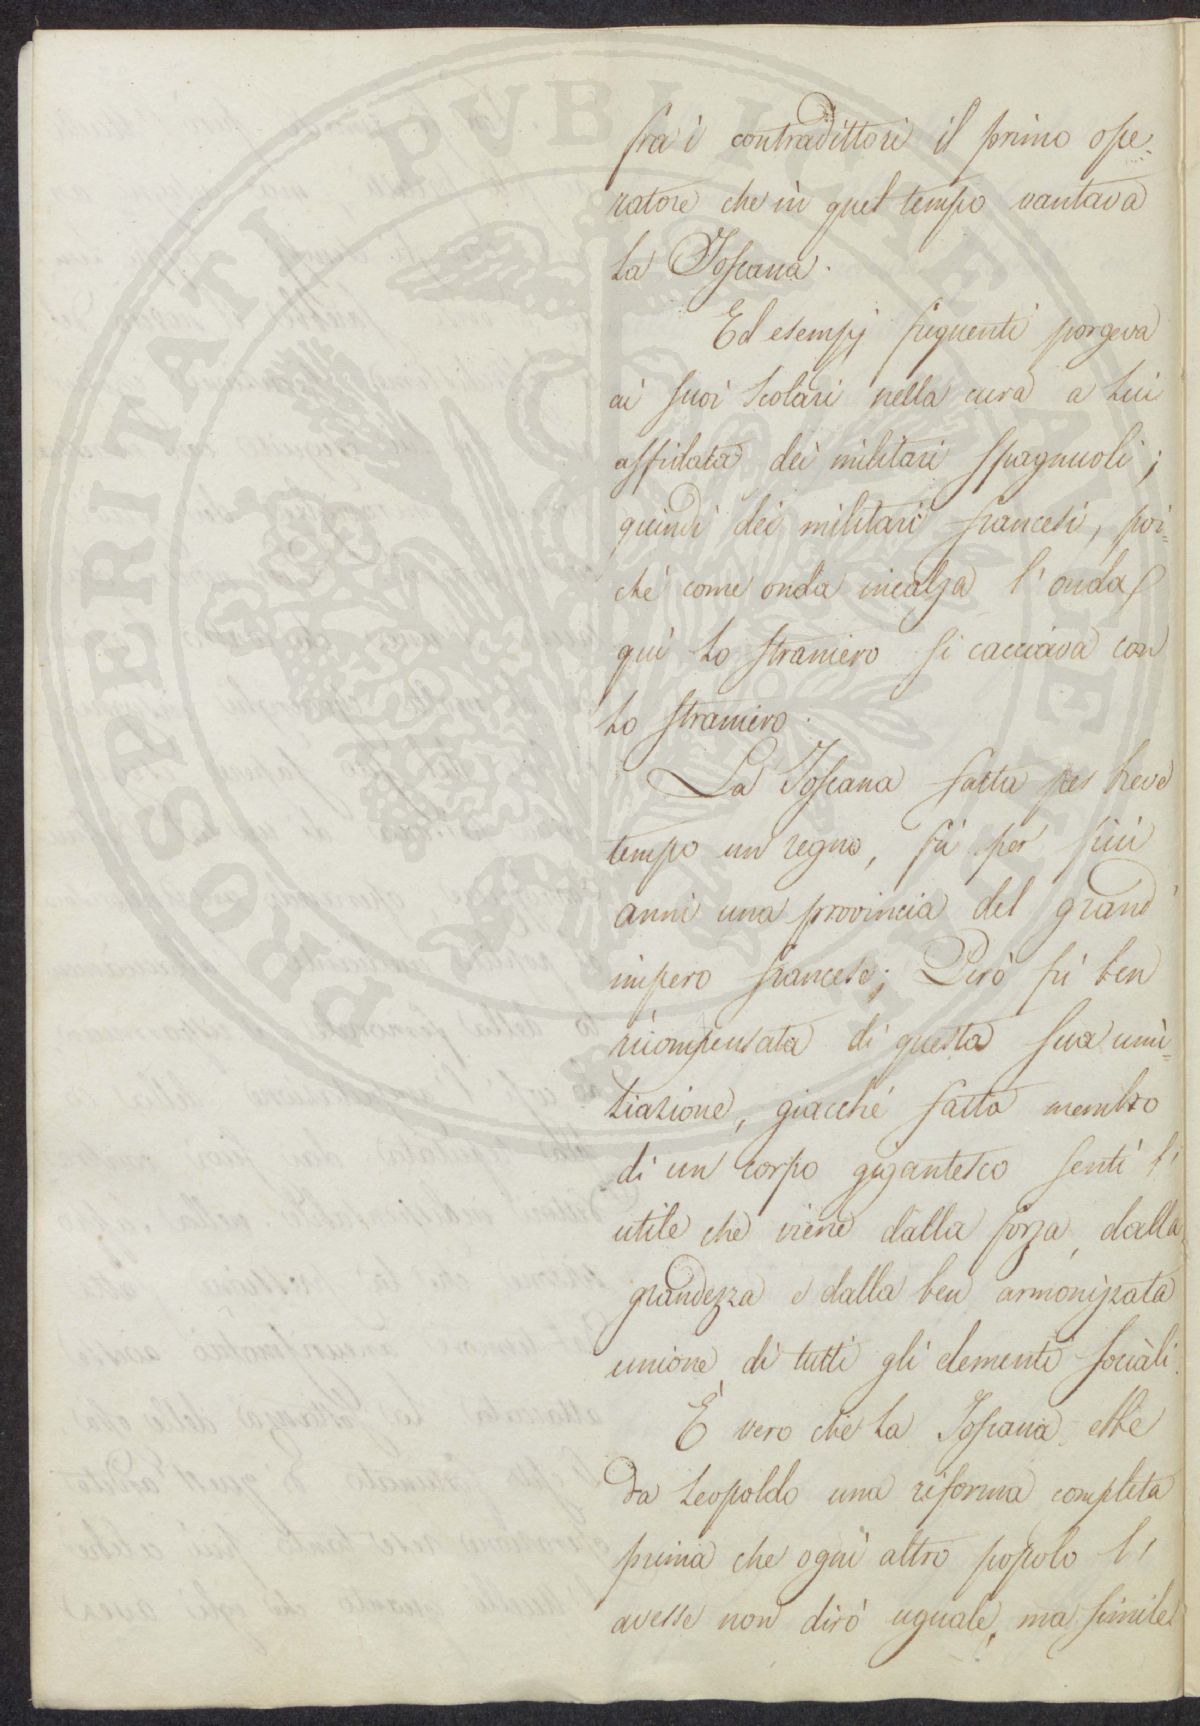 fra i contradittori il primo ope=
ratore che in quel tempo vantava
la Toscana.
Ed esempj frequenti porgeva
ai suoi scolari nella cura a lui
affidata dei militari spagnuoli;
quindi dei militari francesi, poi=
chè come onda incalza l'onda
qui lo straniero si cacciava con
lo straniero.
La Toscana fatta per breve
tempo un regno, fù per più
anni una provincia del grand'
impero francese; Però fù ben
ricompensata di questa sua umi=
liazione, giacchè fatta membro
di un corpo gigantesco sentì l'
utile che viene dalla forza, dalla
grandezza e dalla ben armonizzata
unione di tutti gli elementi sociali.
È vero che la Toscana ebbe
da Leopoldo una riforma completa
prima che ogni altro popolo l'
avesse non dirò uguale, ma simile
PROSPERITATI PVBLICAE AVGENDAE